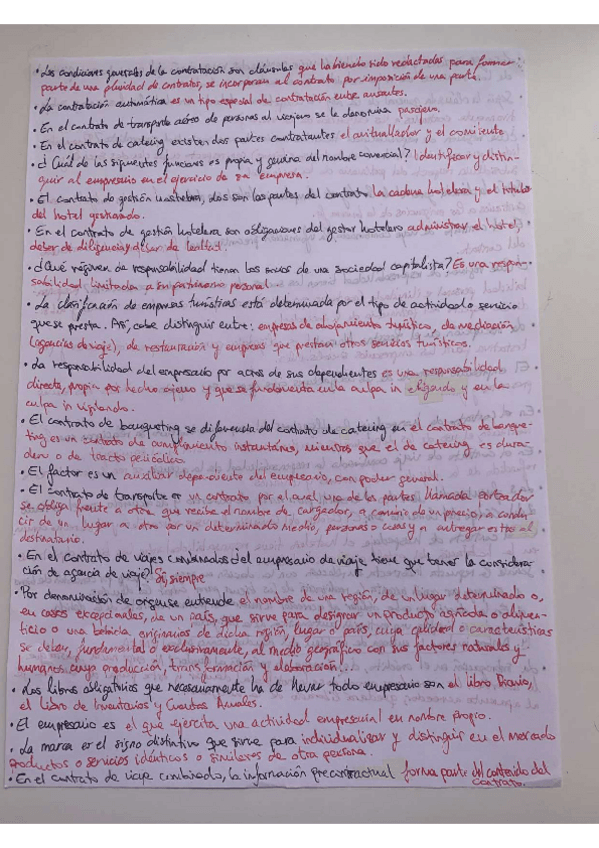 • Las condiciones generales de la contratación son cláusulas que habiendo sido redactadas para formar
parte de una pluridad de contratos, se incorporan al contrato por imposición de una parte.
• La contratación automática es un tipo especial de contratación entre ausentes.
• En el contrato de transporte aéreo de personas al viajero se le denomina pasajero.
• En el contrato de catering existen dos partes contratantes el avituallador y el comitente
• ¿Cuál de las siguientes funciones es propia y genuina del nombre comercial? Identificar y distin-
guir al empresario en el ejercicio de su empresa.
• El contrato de gestión hostelera, dos son las partes del contrato la cadena hotelera y el titular
del hotel gestionado.
• En el contrato de gestión hotelera son obligaciones del gestor hotelero administrar el hotel,
deber de diligencia y deber de lealtad.
• ¿Qué régimen de responsabilidad tienen los socios de una sociedad capitalista? Es una respon-
sabilidad limitada a su patrimonio personal
• La clasificación de empresas turísticas está determinada por el tipo de actividad o servicio
que se presta. Así, cabe distinguir entre: empresas de alojamiento turístico, de mediación
(agencias de viaje), de restauración y empresas que prestan otros servicios turísticos.
• La responsabilidad del empresario por actos de sus dependientes es una responsabilidad
directa, propia por hecho ajeno y que se fundamenta en la culpa in eligendo y en la
culpa in vigilando.
• El contrato de banqueting se diferencia del contrato de catering en el contrato de banque-
ting es un contrato de cumplimiento instantáneo, mientras que el de catering es dura-
dero o de tracto periódico
• El factor es un auxiliar dependiente del empresario, con poder general.
• El contrato de transporte es un contrato por el cual, una de las partes llamada portador
se obliga frente a otra que recibe el nombre de cargador, a cambio de un precio, a condu-
cir de un lugar a otro por un determinado medio, personas o cosas y a entregar estas al
destinatario.
• En el contrato de viajes combinados del empresario de viaje tiene que tener la considera-
ción de agencia de viaje? Sí, siempre
• Por denominación de origen se entiende el nombre de una región, de un lugar determinado o,
en casos excepcionales, de un país, que sirve para designar un producto agrícola o alimen-
ticio o una bebida, originarios de dicha región, lugar o país, cuya calidad o características
se deben, fundamental o exclusivamente, al medio geográfico con sus factores naturales y
humanos cuya producción, transformación y elaboración...
• Los libros obligatorios que necesariamente ha de llevar todo empresario son el libro Diario,
el libro de Inventarios y Cuentas Anuales.
• El empresario es el que ejercita una actividad empresarial en nombre propio.
• La marca es el signo distintivo que sirve para individualizar y distinguir en el mercado
productos o servicios idénticos o similares de otra persona.
• En el contrato de viaje combinado, la información precontractual forma parte del contenido del
contrato.